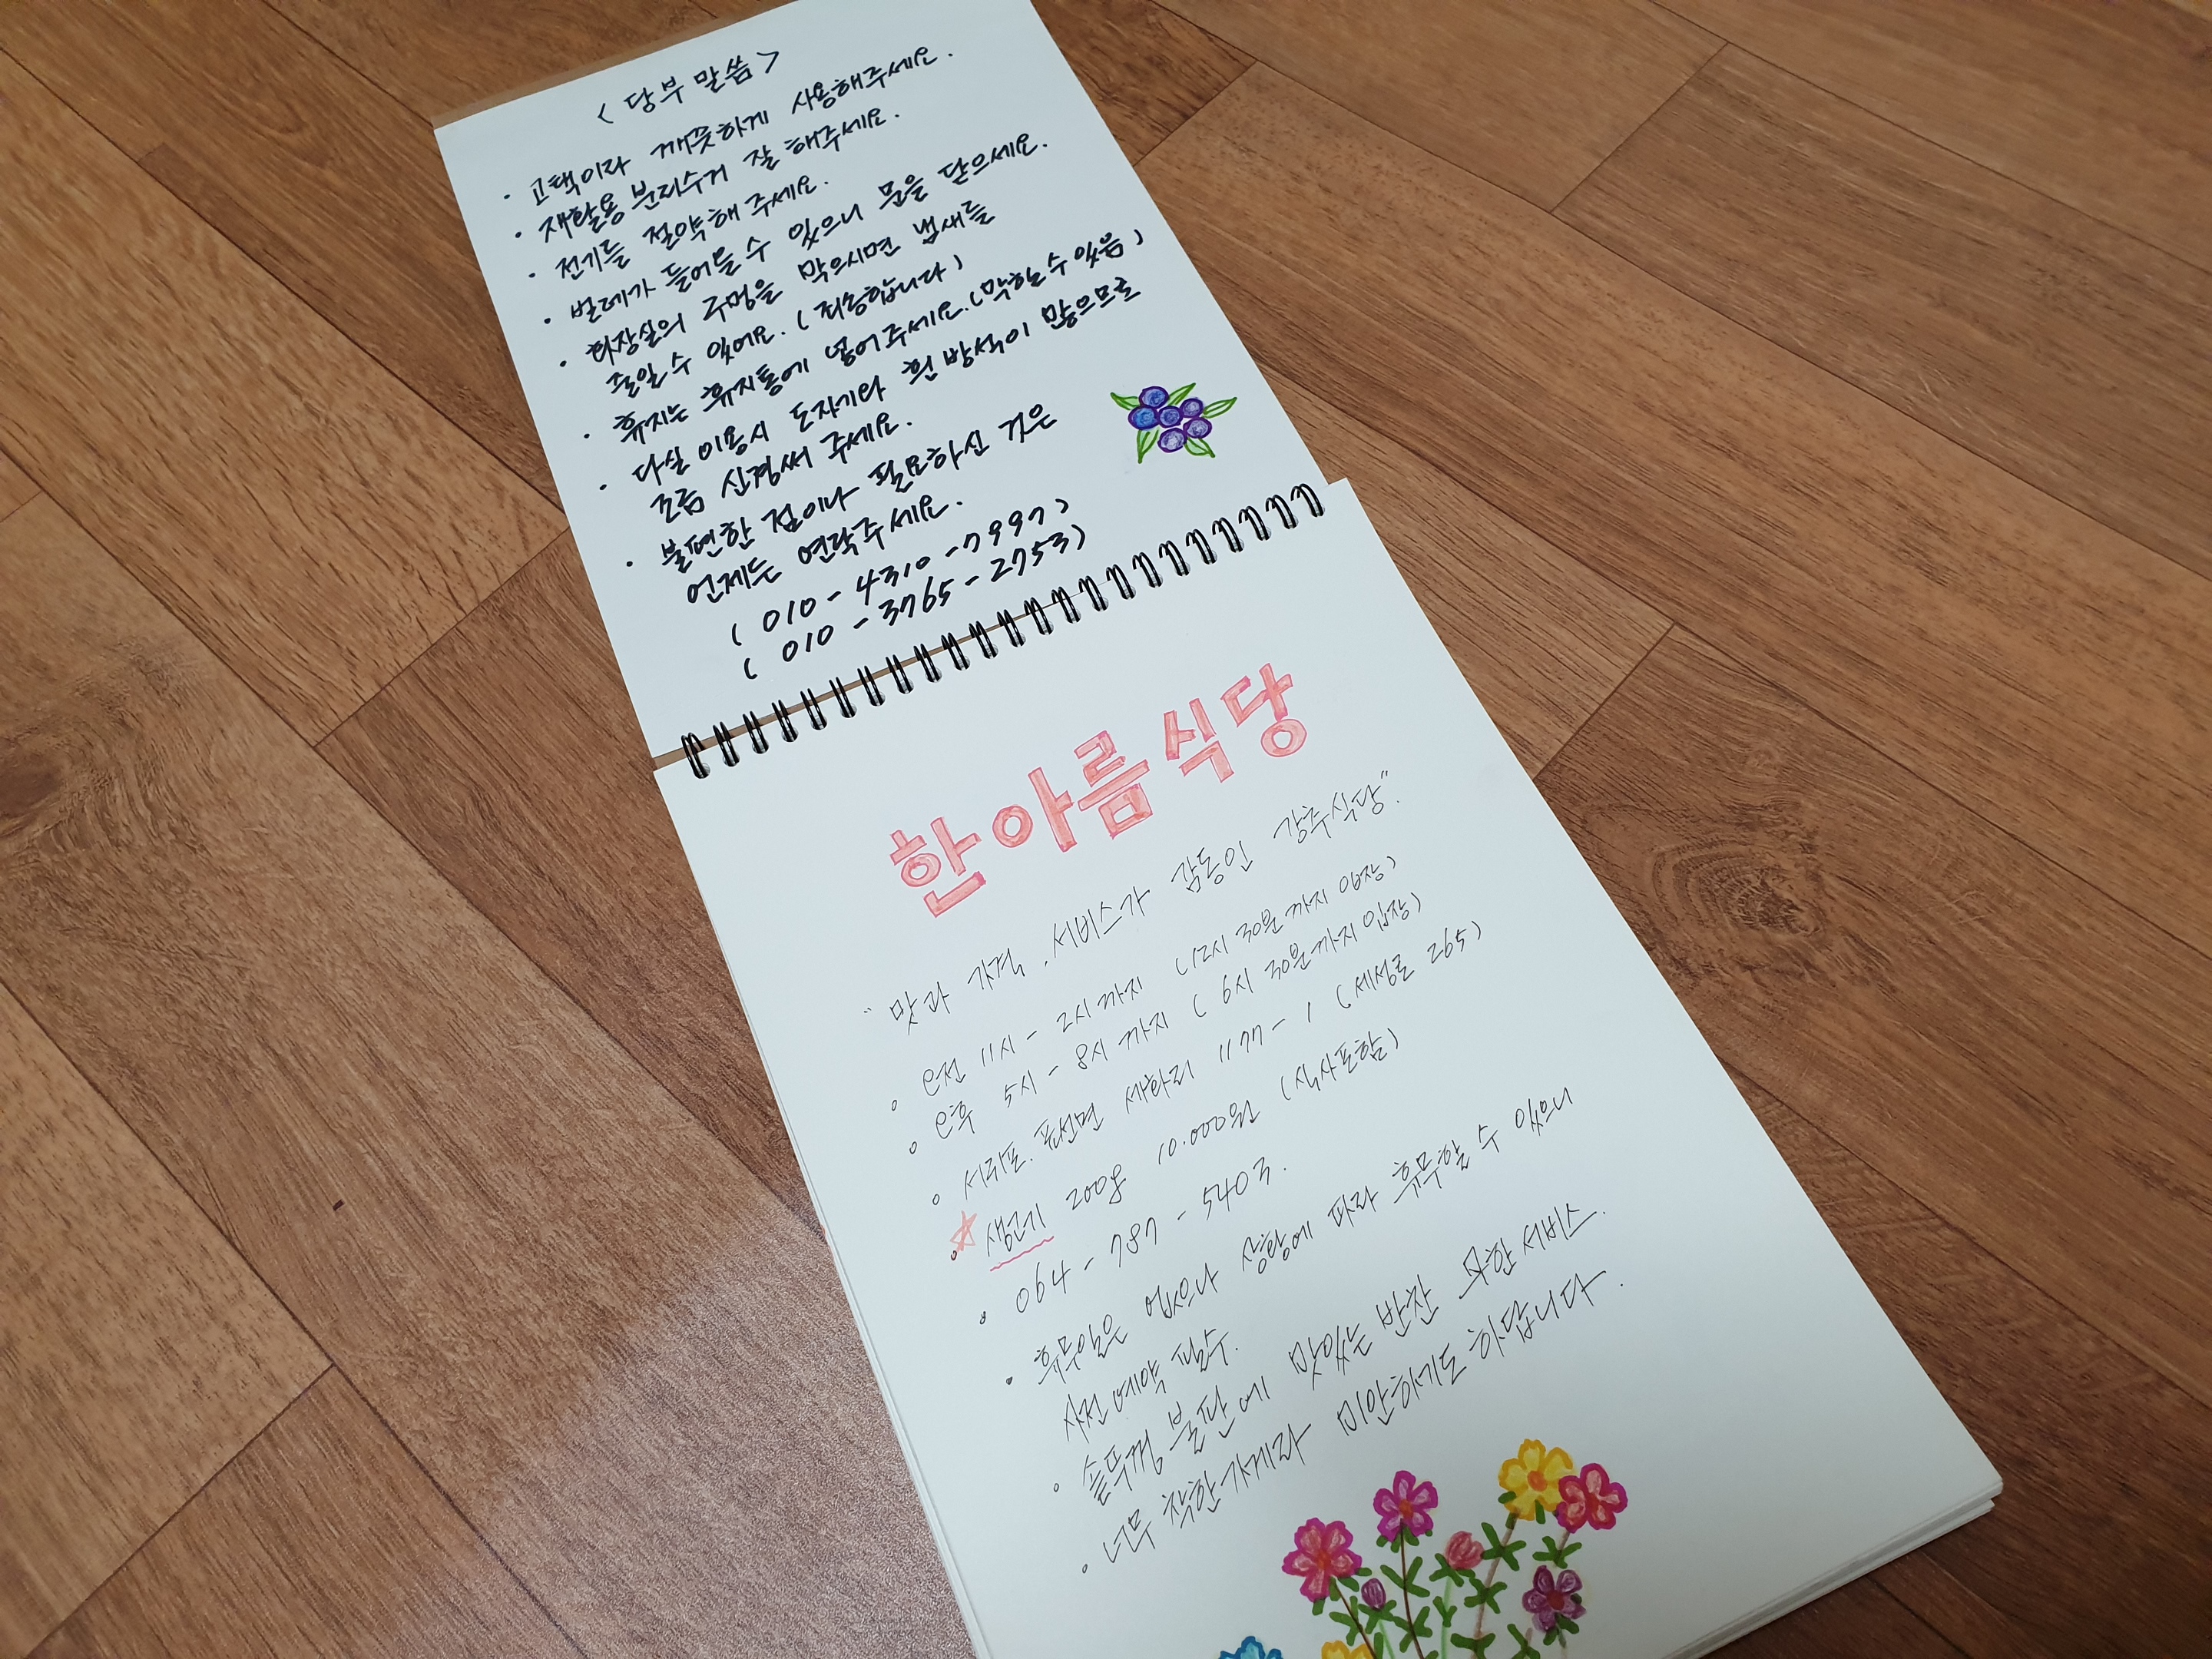 < 당부 말씀 >
· 고택이라 깨끗하게 사용해주세요.
· 재활용 분리수거 잘 해주세요.
· 전기를 절약해 주세요.
· 벌레가 들어올 수 있으니 문을 닫으세요.
· 화장실의 구멍을 막으시면 냄새를
줄일 수 있어요. (죄송합니다)
· 휴지는 휴지통에 넣어주세요. (막힐 수 있음)
· 다실 이용시 도자기와 흰 방석이 많으므로
조금 신경써 주세요.
· 불편한 점이나 필요하신 것은
언제든 연락주세요.
( 010 - 4310 - 7997 )
( 010 - 3765 - 2753 )
한아름식당
"맛과 가격, 서비스가 감동인 강추식당".
○ 오전 11시 - 2시까지 (12시 30분까지 입장)
○ 오후 5시 - 8시까지 ( 6시 30분까지 입장)
○ 서귀포. 표선면 세화리 1177 - 1 (세성로 265)
☆ 생고기 200g 10.000원 (식사포함)
○ 064 - 787 - 5403.
○ 휴무일은 없으나 상황에 따라 휴무할 수 있으니
사전예약 필수.
○ 솥뚜껑 불판에 맛있는 반찬 무한서비스.
○ 너무 착한가게라 미안하기도 하답니다.